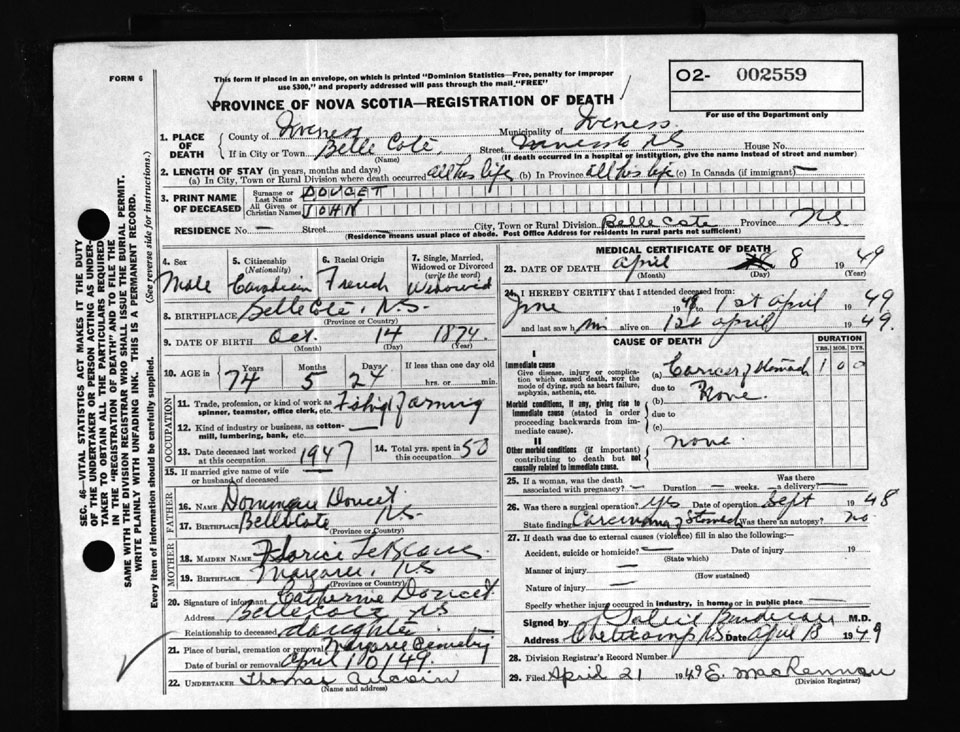 FORM 6
This form if placed in an envelope, on which is printed "Dominion Statistics—Free, penalty for improper
use $300," and properly addressed will pass through the mail "FREE"
PROVINCE OF NOVA SCOTIA—REGISTRATION OF DEATH
O2- 002559
For use of the Department only
SEC. 46—VITAL STATISTICS ACT MAKES IT THE DUTY
OF THE UNDERTAKER OR PERSON ACTING AS UNDER-
TAKER TO OBTAIN ALL THE PARTICULARS REQUIRED
IN THE "REGISTRATION OF DEATH" AND TO FILE THE
SAME WITH THE DIVISION REGISTRAR WHO SHALL ISSUE THE BURIAL PERMIT.
WRITE PLAINLY WITH UNFADING INK. THIS IS A PERMANENT RECORD.
Every item of information should be carefully supplied. (See reverse side for instructions.)
1. PLACE OF DEATH
County of Inverness Municipality of Inverness
If in City or Town Belle Cote, Street Inverness NS House No.
(Name) (If death occurred in a hospital or institution, give the name instead of street and number)
2. LENGTH OF STAY (in years, months and days)
(a) In City, Town or Rural Division where death occurred all his life (b) In Province all his life (c) In Canada (if immigrant) —
3. PRINT NAME OF DECEASED
Surname or Last Name DOUCET
All Given or Christian Names JOHN
RESIDENCE No. — Street City, Town or Rural Division Belle Cote Province NS
(Residence means usual place of abode. Post Office Address for residents in rural parts not sufficient)
4. Sex Male
5. Citizenship (Nationality) Canadian
6. Racial Origin French
7. Single, Married, Widowed or Divorced (write the word) Widowed
8. BIRTHPLACE Belle Cote, N.S.
(Province or Country)
9. DATE OF BIRTH Oct. 14 1874
(Month) (Day) (Year)
10. AGE in Years 74 Months 5 Days 24 If less than one day old
hrs. or min.
OCCUPATION
11. Trade, profession or kind of work as
spinner, teamster, office clerk, etc. Fishing farming
12. Kind of industry or business, as cotton-
mill, lumbering, bank, etc. —
13. Date deceased last worked at this occupation 1947
14. Total yrs. spent in this occupation 50
15. If married give name of wife
or husband of deceased
FATHER
16. NAME Doucet
17. BIRTHPLACE Belle Cote NS
(Province or Country)
MOTHER
18. MAIDEN NAME LeBlanc
19. BIRTHPLACE Margaree, NS
(Province or Country)
20. Signature of informant Catherine Doucet
Address Belle Cote NS
Relationship to deceased daughter
21. Place of burial, cremation or removal Margaree Cemetery
Date of burial or removal April 10/49.
22. UNDERTAKER Thomas Aucoin
(Name and address)
MEDICAL CERTIFICATE OF DEATH
23. DATE OF DEATH April 8 1949
(Month) (Day) (Year)
24. I HEREBY CERTIFY that I attended deceased from:
June 1948 to 1st April 1949
and last saw him alive on 1st April 1949.
CAUSE OF DEATH
DURATION
YRS. MOS. DYS.
I
Immediate cause
Give disease, injury or compli-
cation which caused death, not the
mode of dying, such as heart failure,
asphyxia, asthenia, etc.
(a) Cancer of Stomach 1 0 0
due to
Morbid conditions, if any, giving rise to
immediate cause (stated in order
proceeding backwards from im-
mediate cause).
(b) None.
due to
(c)
II
Other morbid conditions (if important)
contributing to death but not
causally related to immediate cause.
none.
25. If a woman, was the death associated with pregnancy? — Duration — weeks. Was there a delivery? —
26. Was there a surgical operation? yes Date of operation Sept 1948
State finding Carcinoma of Stomach Was there an autopsy? no.
27. If death was due to external causes (violence) fill in also the following:—
Accident, suicide or homicide? — Date of injury 19
(State which)
Manner of injury —
(How sustained)
Nature of injury —
Specify whether injury occurred in industry, in home, or in public place —
Signed by M.D.
Address Cheticamp NS Date April 13 1949
28. Division Registrar's Record Number
29. Filed April 21 1949 E. MacLennan
(Division Registrar)